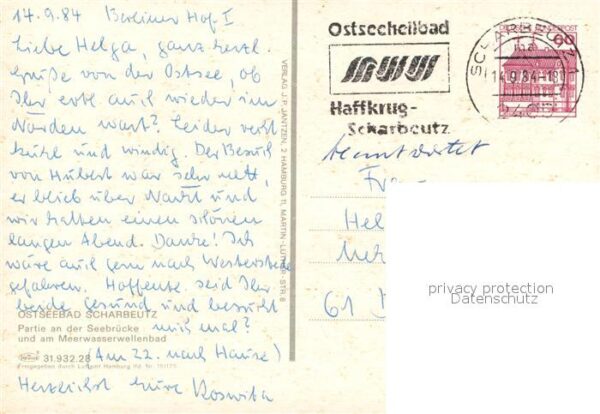 14.9.84 Berliner Hof I
Liebe Helga, ganz herzl.
Grüße von der Ostsee, ob
Ihr erbt auch wieder im
Norden wart? Leider recht
kühl und windig. Der Besuch
von Hubert war sehr nett,
er blieb über Nacht und
wir hatten einen schönen
langen Abend. Danke! Ich
wäre auch gern nach Westerstede
gefahren. Hoffentl. seid Ihr
beide gesund und besucht
mich mal?
(Am 22. nach Hause)
Herzlichst Eure Roswita
OSTSEEBAD SCHARBEUTZ
Partie an der Seebrücke
und am Meerwasserwellenbad
31.932.28
Freigegeben durch Luftamt Hamburg
VERLAG J. P. JANTZEN, 2 HAMBURG 11, MARTIN-LUTHER-STR. 6
Ostseeheilbad
Haffkrug-
Scharbeutz
SCHARBEUTZ 1
14.9.84-18
2409
60
beantwortet
Fra
Hel
61
privacy protection
Datenschutz